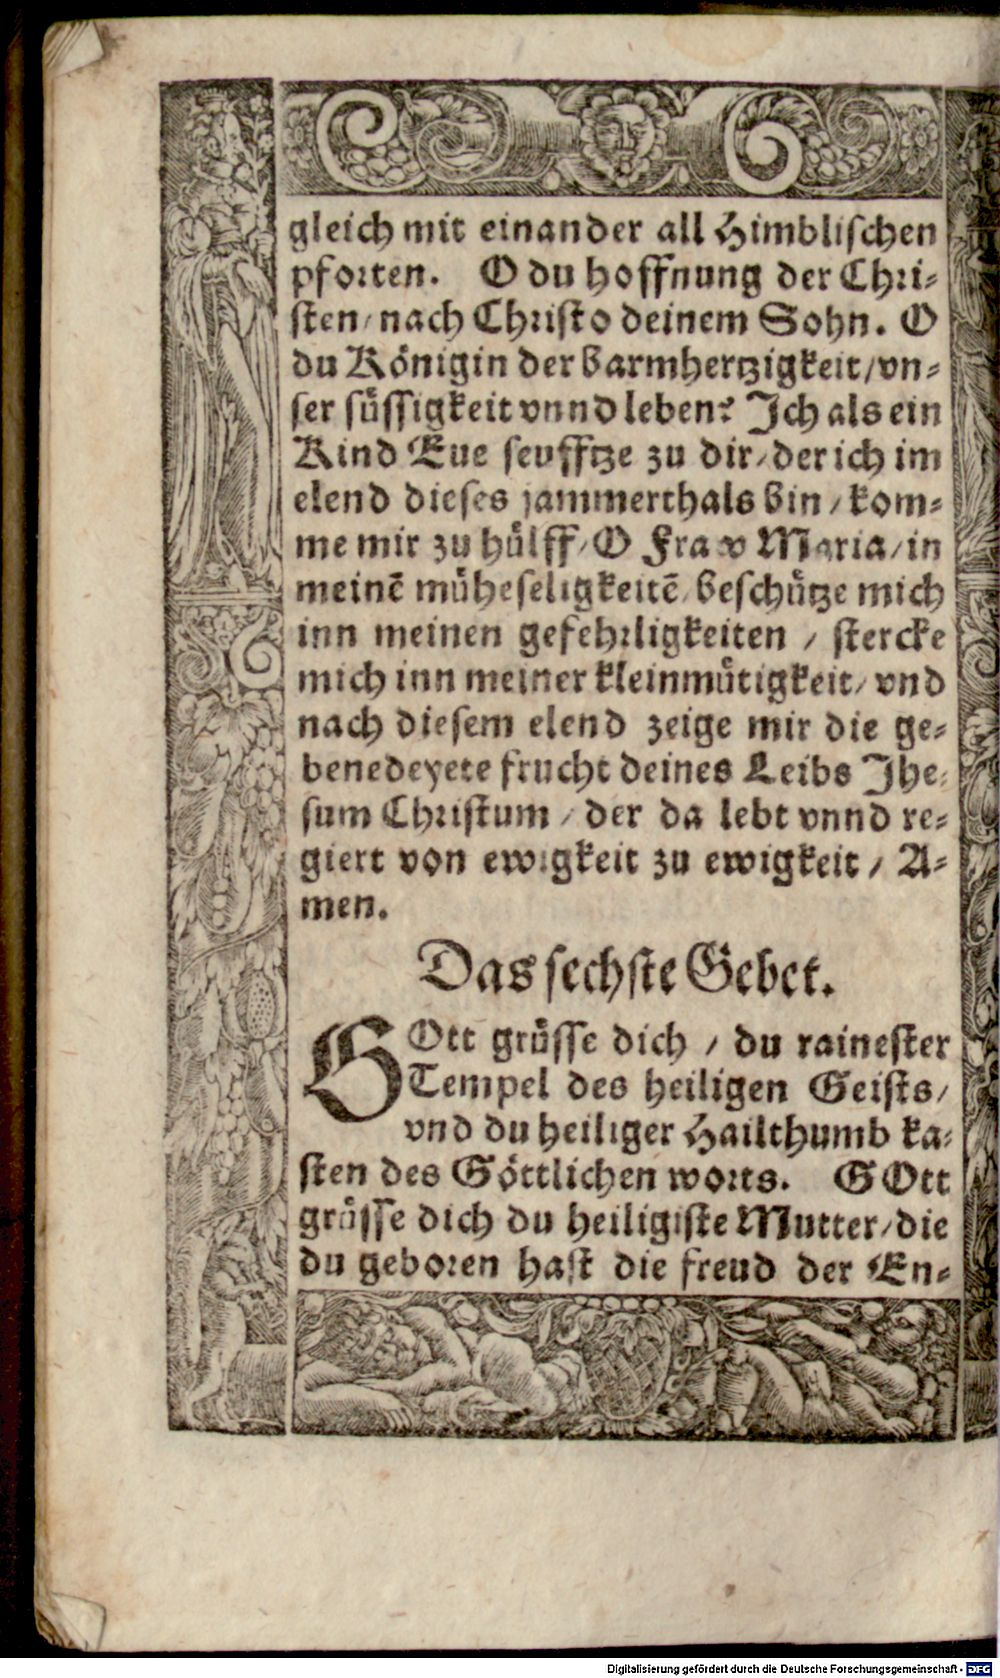 gleich mit einander all Himblischen
pforten. O du hoffnung der Chri⸗
sten / nach Christo deinem Sohn. O
du Königin der barmhertzigkeit / vn⸗
ser süssigkeit vnnd leben? Ich als ein
Kind Eue seufftze zu dir / der ich im
elend dieses jammerthals bin / kom⸗
me mir zu hülff / O Fraw Maria / in
meinẽ müheseligkeitẽ / beschütze mich
inn meinen gefehrligkeiten / stercke
mich inn meiner kleinmütigkeit / vnd
nach diesem elend zeige mir die ge⸗
benedeyete frucht deines Leibs Jhe⸗
sum Christum / der da lebt vnnd re⸗
giert von ewigkeit zu ewigkeit / A⸗
men.
Das sechste Gebet.
GOtt grüsse dich / du rainester
Tempel des heiligen Geists /
vnd du heiliger Hailthumb ka⸗
sten des Göttlichen worts. GOtt
grüsse dich du heiligiste Mutter / die
du geboren hast die freud der En⸗
Digitalisierung gefördert durch die Deutsche Forschungsgemeinschaft - DFG